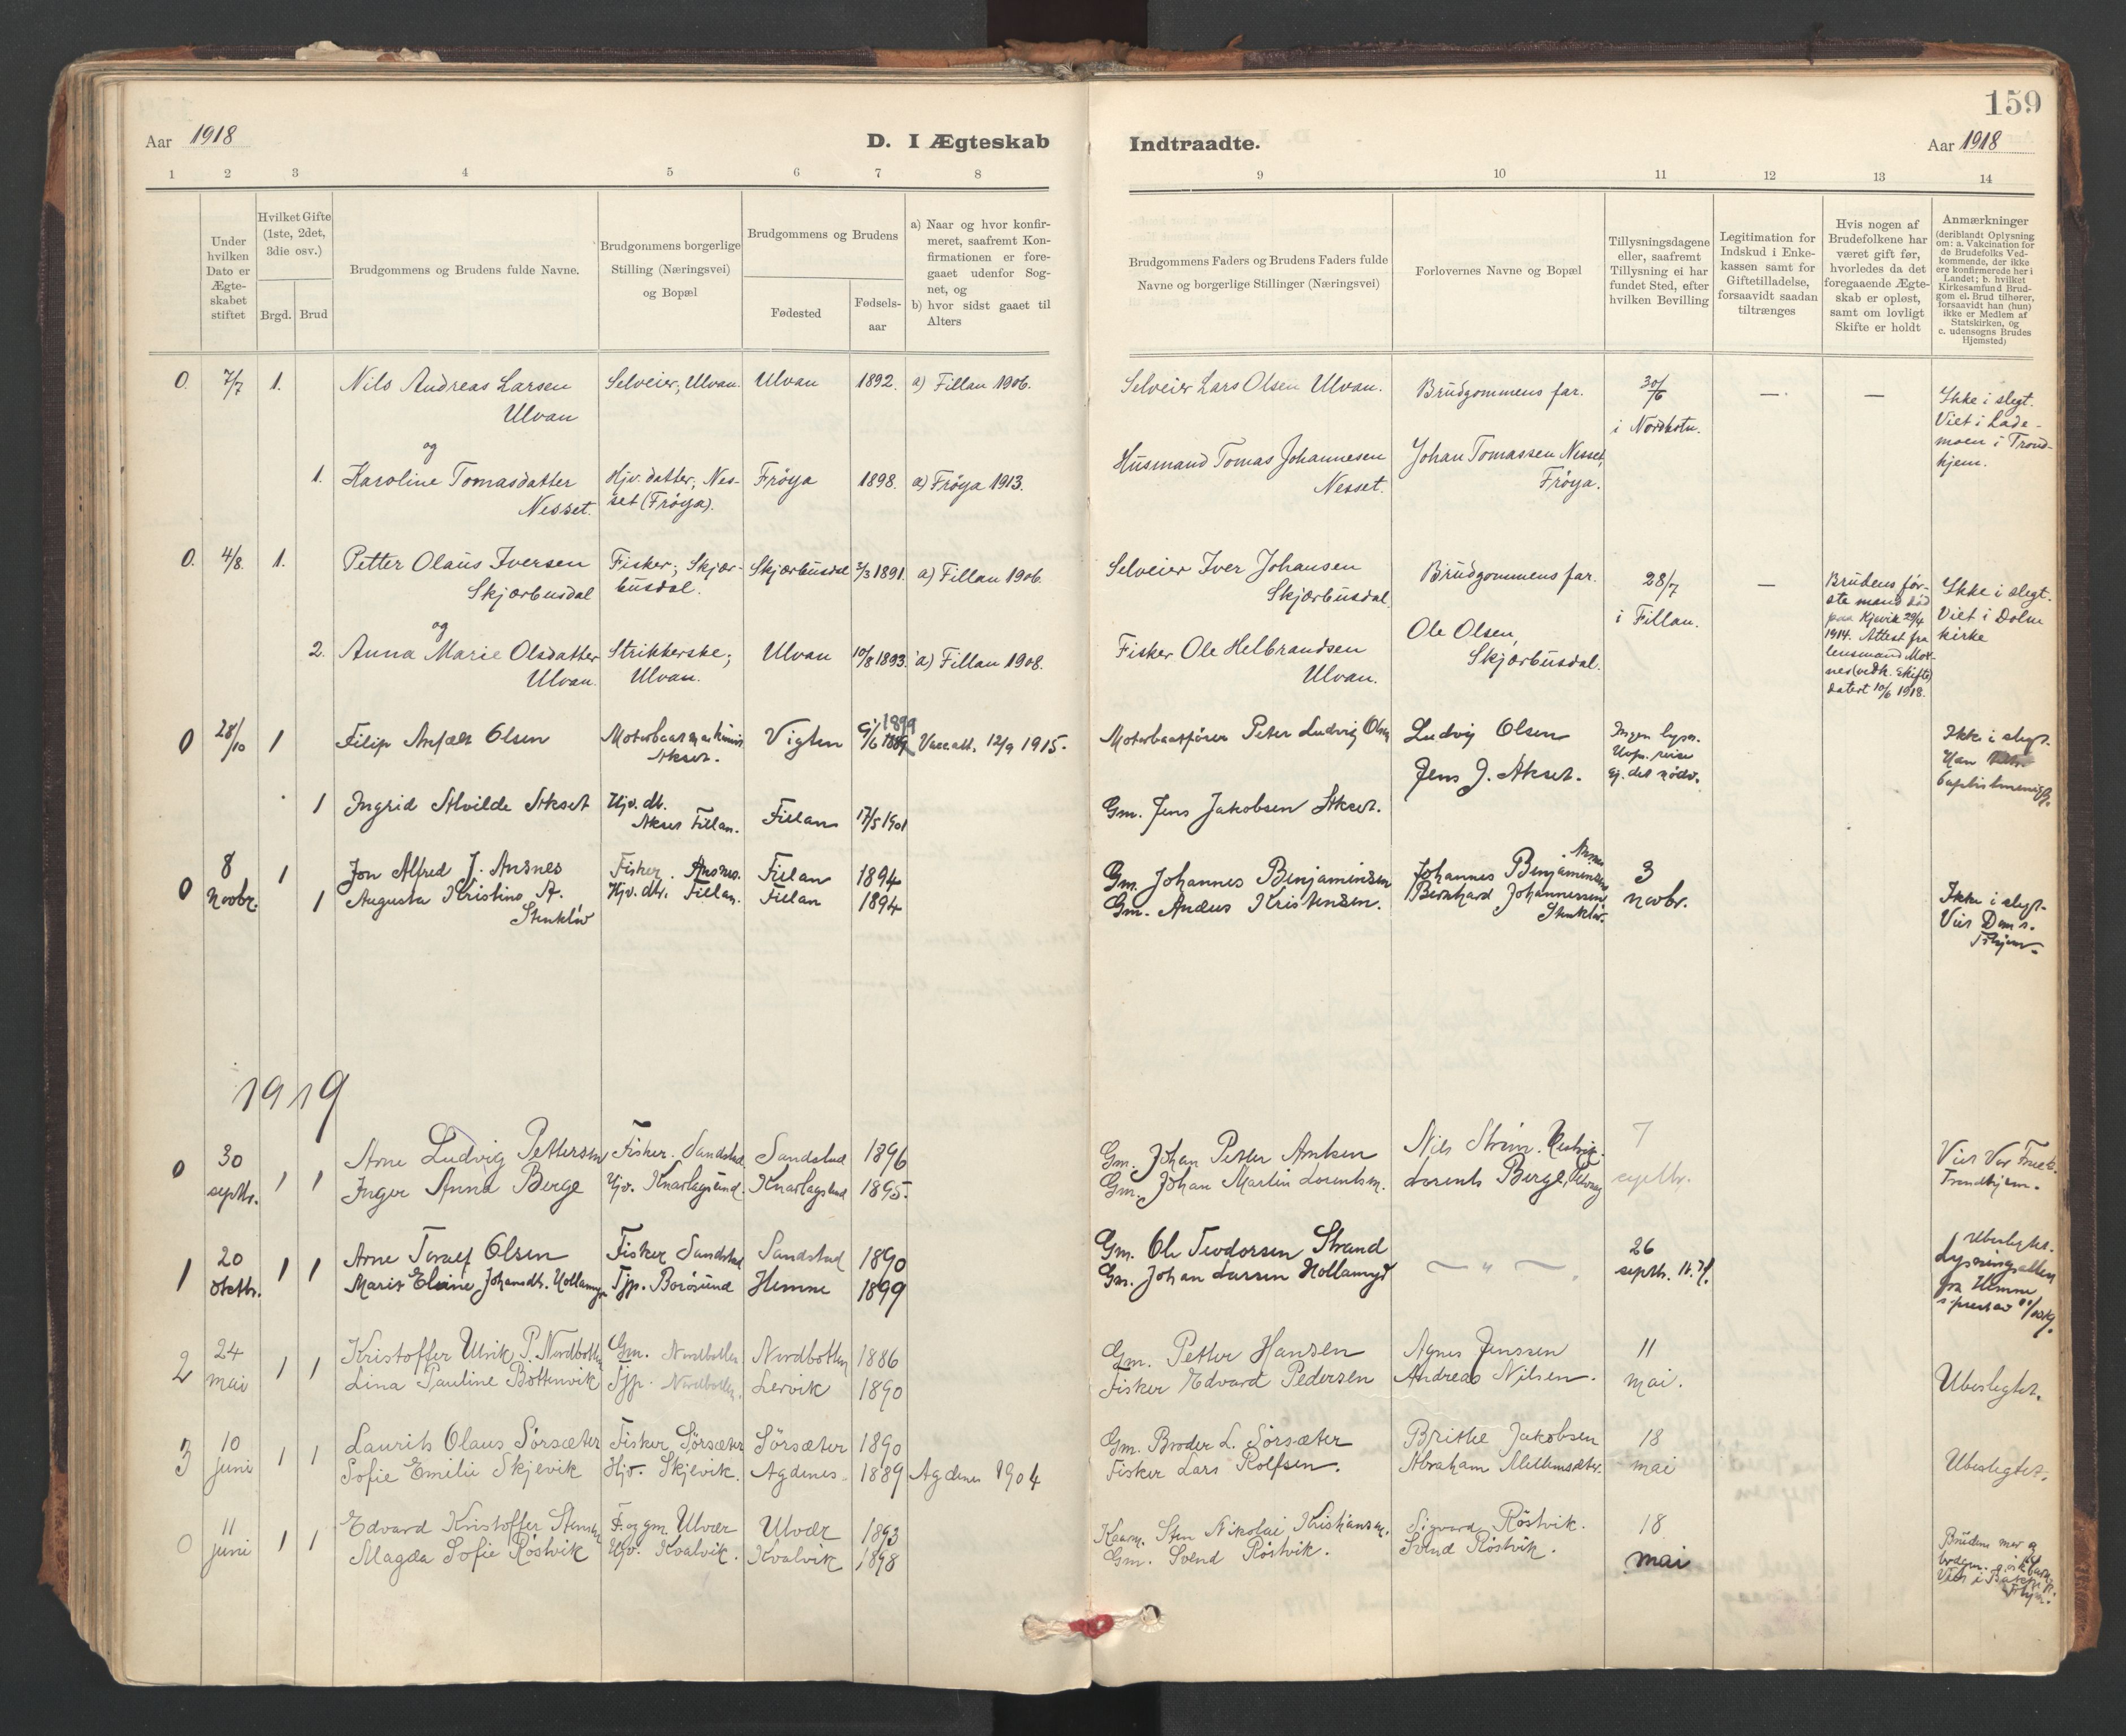 159
Aar 1918
D. I Ægteskab
Indtraadte.
Aar 1918
1 2 3 4 5 6 7 8
9 10 11 12 13 14
Under hvilken Dato er Ægte-skabet stiftet
Hvilket Gifte (1ste, 2det, 3die osv.)
Brgd. Brud
Brudgommens og Brudens fulde Navne.
Brudgommens borgerlige Stilling (Næringsvei) og Bopæl
Brudgommens og Brudens
Fødested
Fødsels-aar
a) Naar og hvor konfir-meret, saafremt Kon-firmationen er fore-gaaet udenfor Sog-net, og
b) hvor sidst gaaet til Alters
Brudgommens Faders og Brudens Faders fulde Navne og borgerlige Stillinger (Næringsvei)
Forlovernes Navne og Bopæl
Tillysningsdagene eller, saafremt Tillysning ei har fundet Sted, efter hvilken Bevilling
Legitimation for Indskud i Enke-kassen samt for Giftetilladelse, forsaavidt saadan tiltrænges
Hvis nogen af Brudefolkene har været gift før, hvorledes da det foregaaende Ægte-skab er opløst, samt om lovligt Skifte er holdt
Anmærkninger
(deriblandt Oplysning om: a. Vakcination for de Brudefolks Ved-kommende, der ikke ere konfirmerede her i Landet; b. hvilket Kirkesamfund Brud-gom el. Brud tilhører, forsaavidt han (hun) ikke er Medlem af Statskirken, og c. udensogns Brudes Hjemsted)
0. 7/7 1. Nils Andreas Larsen Selveier, Ulvan. Ulvan 1892. a) Fillan 1906. Selveier Lars Olsen Ulvan. Brudgommens far. 30/6 — — Ikke i slegt.
Ulvan i Nordbotn. Viet i Lade-
og moen i Trond-
1. Karoline Tomasdatter Hjv. datter, Nes- Frøya 1898. a) Frøya 1913. Husmand Tomas Johannesen Johan Tomassen Nesset, hjem.
Nesset. set (Frøya). Nesset. Frøya.
0. 4/8. 1. Petter Olaus Iversen Fisker; Skjær- Skjærbusdal 2/3 1891. a) Fillan 1906. Selveier Iver Johansen Brudgommens far. 28/7 — Brudens før- Ikke i slegt.
Skjærbusdal busdal. Skjærbusdal i Fillan. ste mand død Viet i Dolm
og paa Kjevik 29/4 kirke
2. Anna Marie Olsdatter Strikkerske; Ulvan 10/8 1893. a) Fillan 1908. Fisker Ole Helbrandsen Ole Olsen, 1914. Attest fra
Ulvan. Ulvan. Ulvan. Skjærbusdal. lensmand
(vedk. Skifte)
datert 10/6 1918.
0 28/10 1 Filip Olsen Vigten 9/6 1899 Vaccatt. 12/9 1915. Motorbaatfører Peter Ludvig Olsen Ludvig Olsen Ingen lysn. Ikke i slegt.
Akset. Jens J. Akset. Han
1 Ingrid Alvilde Akset Hjv. dt. Fillan 17/5 1901 Gm. Jens Jakobsen Akset.
Akset Fillan.
0 8 1 Jon Alfred J. Ansnes Fisker. Ansnes. Fillan 1894 Gm. Johannes Benjaminsen Johannes Benjaminsen 3 Ikke i slegt.
novbr. 1 Augusta Kristine A. Hjv. dtr. Fillan. Fillan 1894 Gm. Kristensen. Bernhard Johannessen novbr.
1919
0 30 1 1 Arne Ludvig Pettersen Fisker. Sandstad. Sandstad 1896 Gm. Johan Petter 7 Viet Vor Frue k.
septbr. Inger Anna Berge Hjv. Knarlagsund. Knarlagsund 1895. Gm. Johan Martin Lorentsen. Lorents Berge, septbr. Trondhjem.
1 20 1 1 Arne Toralf Olsen Fisker Sandstad Sandstad 1890 Gm. Ole Teodorsen Strand 26 Ubeslegtet.
oktbr. Marit Johansdtr. Tjp. Borøsund Hemne 1899 Gm. Johan Larsen — " — septbr. Lysningsattest
fra Hemne
2 24 1 1 Kristoffer Ulrik P. Nordbotten Gm. Nordbotten Nordbotten 1886 Gm. Petter Hansen Agnes Jenssen 11
mai Lina Pauline Bottenvik Tjp. Nordbotten. Lervik 1890 Fisker Edvard Pedersen Andreas Nilsen. mai. Ubeslegtet.
3 10 1 1 Laurits Olaus Sørsæter Fisker Sørsæter Sørsæter 1890 Gm. Broder L. Sørsæter Jakobsen 18
juni Sofie Emilie Skjevik Hjv. Skjevik. Agdenes. 1889 Agdenes 1904 Fisker Lars Rolfsen. Abraham Mellemsæter. mai Ubeslegtet.
0 11 1 1 Edvard Kristoffer Stensen F. og gm. Ulvær Ulvær 1893 Sten Nikolai Kristiansen. Sigvard Røstvik. 18
juni Magda Sofie Røstvik Hjv. Kvalvik. Kvalvik 1898 Gm. Svend Røstvik. Svend Røstvik. mai